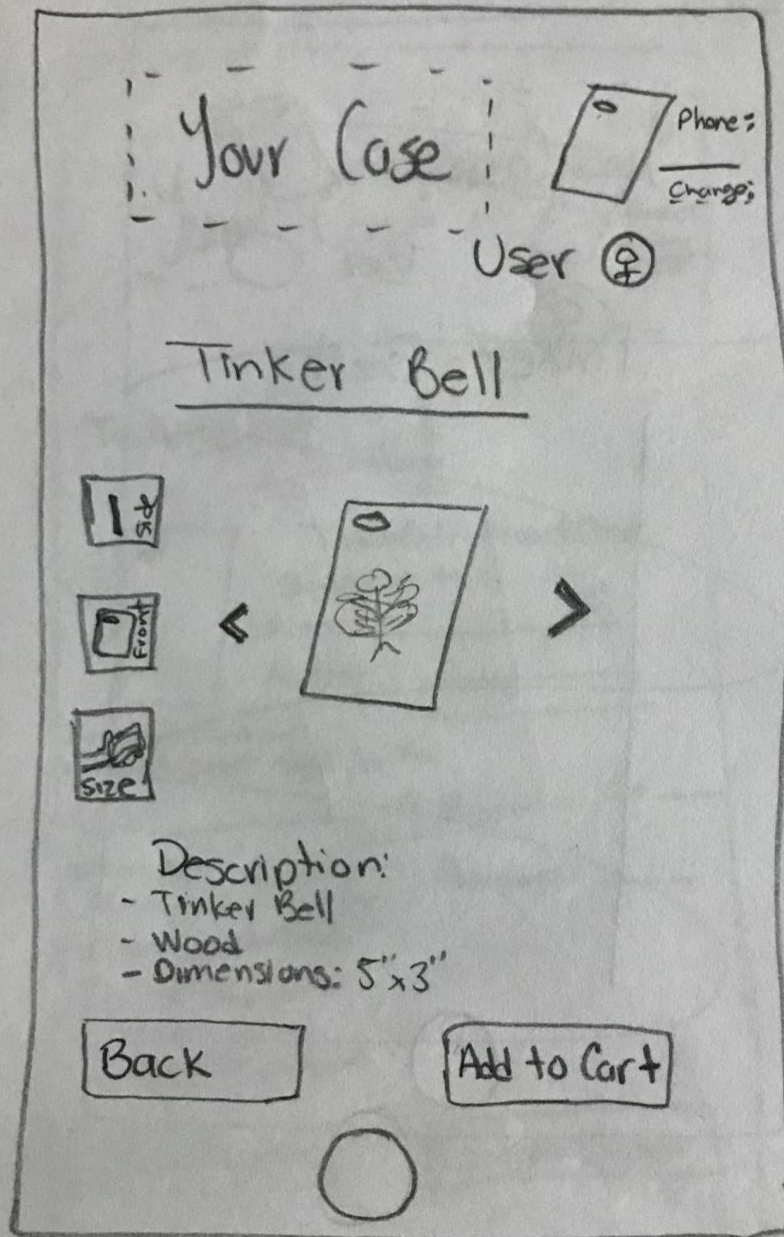 Your Case
Phone:
Change:
User
Tinker Bell
Front
Size
Description:
- Tinker Bell
- Wood
- Dimensions: 5"x3"
Back
Add to Cart